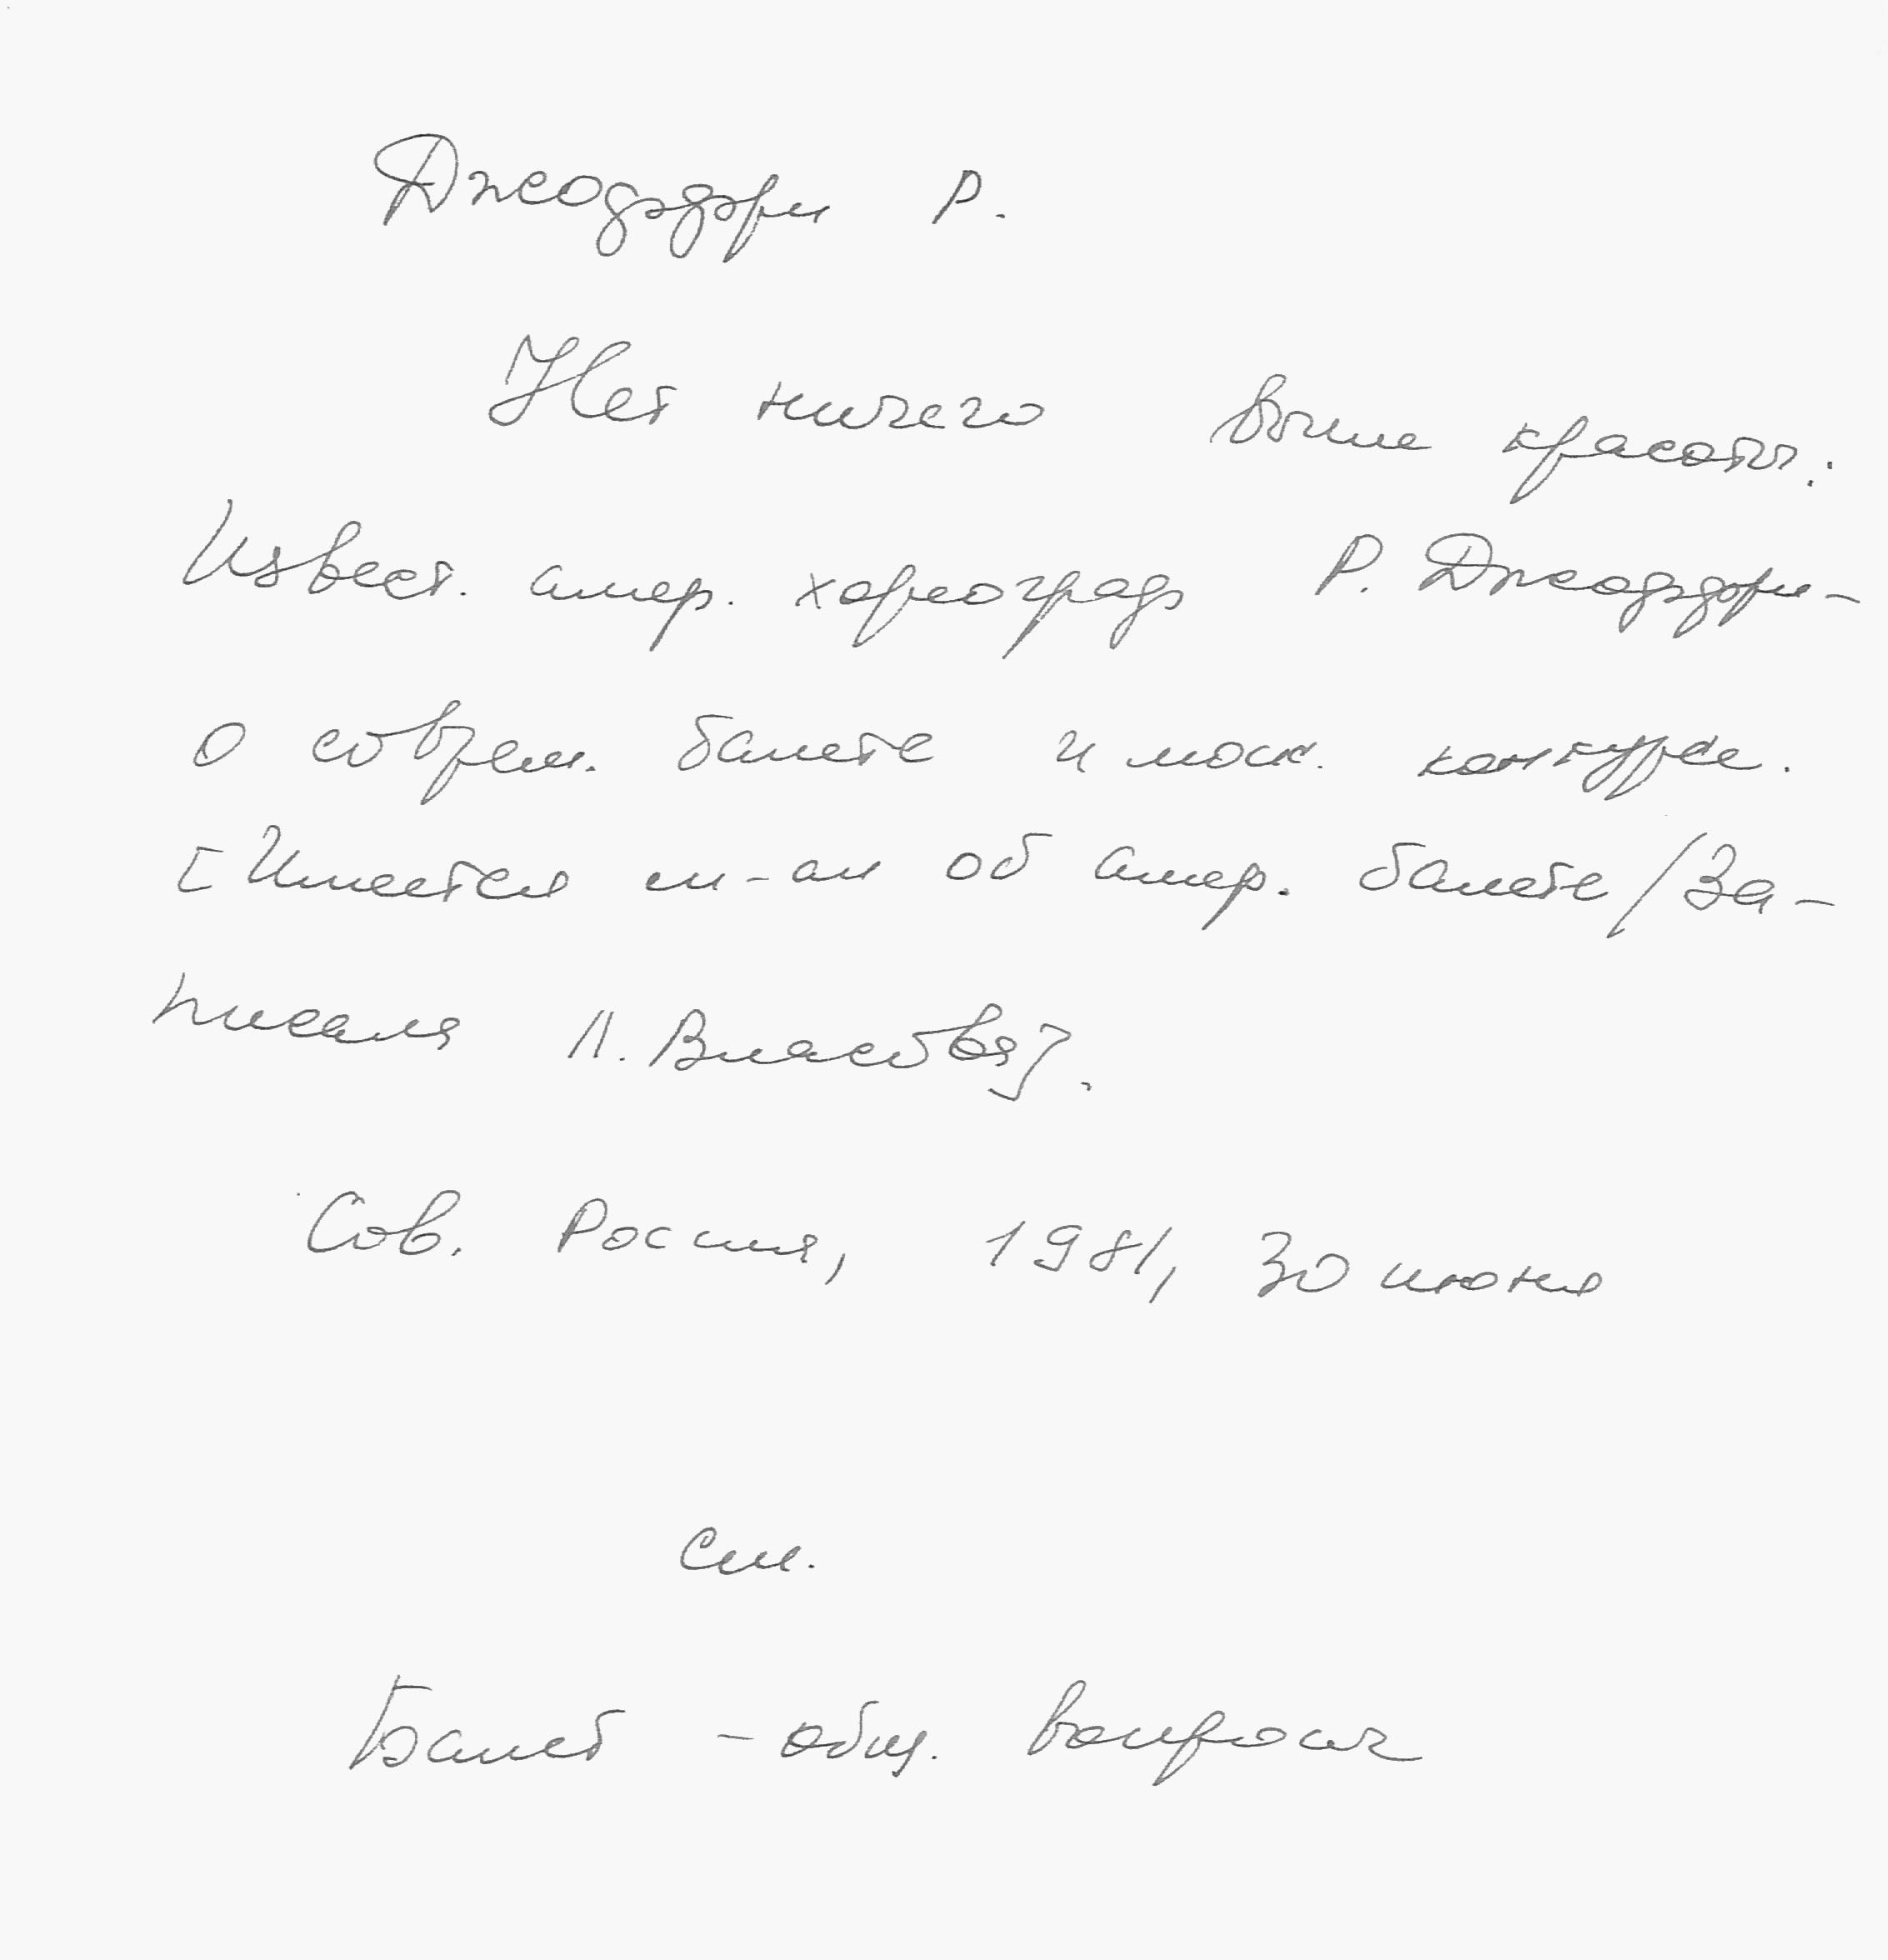 Джоффри Р.
Нет ничего выше красоты:
Извест. амер. хореограф Р. Джоффри -
о соврем. балете и моск. конкурсе.
[Имеется м-ал об амер. балете /За-
писала Л. Власова].
Сов. Россия, 1981, 30 июня
см.
Балет - общ. вопросы